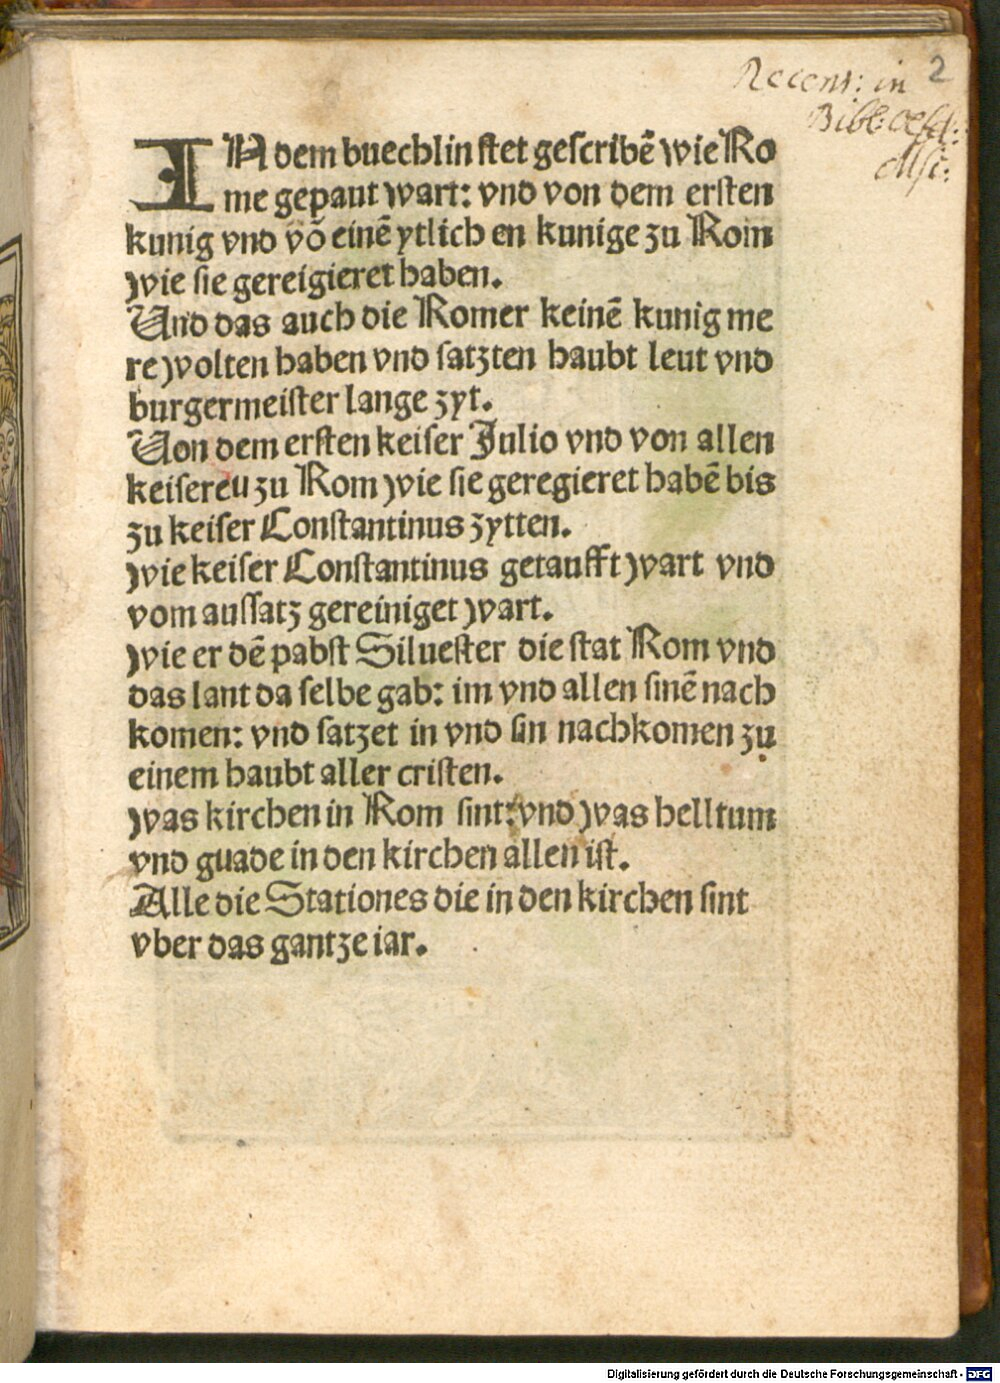 Recens: in 2
Bibl.
Msc.
IN dem buechlin ſtet geſcribē wie Ro
me gepaut wart: vnd von dem erſten
kunig vnd vō einē ytlich en kunige zu Rom
wie ſie gereigieret haben.
Und das auch die Romer keinē kunig me
re wolten haben vnd ſatzten haubt leut vnd
burgermeiſter lange zyt.
Von dem erſten keiſer Julio vnd von allen
keiſereu zu Rom wie ſie geregieret habē bis
zu keiſer Conſtantinus zytten.
wie keiſer Conſtantinus getaufft wart vnd
vom auſſatz gereiniget wart.
wie er dē pabſt Silueſter die ſtat Rom vnd
das lant da ſelbe gab: im vnd allen ſinē nach
komen: vnd ſatzet in vnd ſin nachkomen zu
einem haubt aller criſten.
was kirchen in Rom ſint: vnd was helltum
vnd guade in den kirchen allen iſt.
Alle die Stationes die in den kirchen ſint
vber das gantze iar.
Digitalisierung gefördert durch die Deutsche Forschungsgemeinschaft - DFG